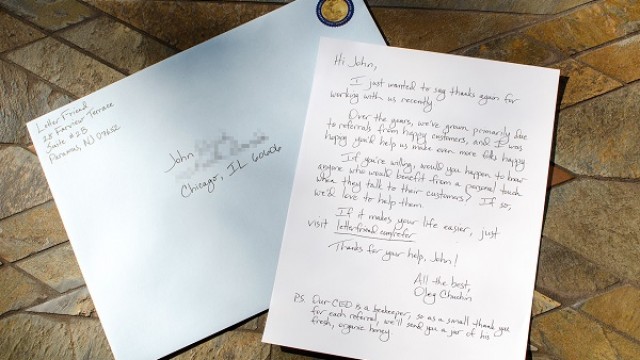 Letter Friend
28 Fairview Terrace
Suite #2B
Paramus, NJ 07652
John
Chicago, IL 60606
Hi John,
I just wanted to say thanks again for
working with us recently.
Over the years, we've grown primarily due
to referrals from happy customers, and I was
hoping you'd help us make even more folks happy.
If you're willing, would you happen to know
anyone who would benefit from a personal touch
when they talk to their customers? If so,
we'd love to help them.
If it makes your life easier, just
visit letterfriend.com/refer
Thanks for your help, John!
All the best,
Oleg
P.S. Our CEO is a beekeeper, so as a small thank you
for each referral, we'll send you a jar of his
fresh, organic honey.